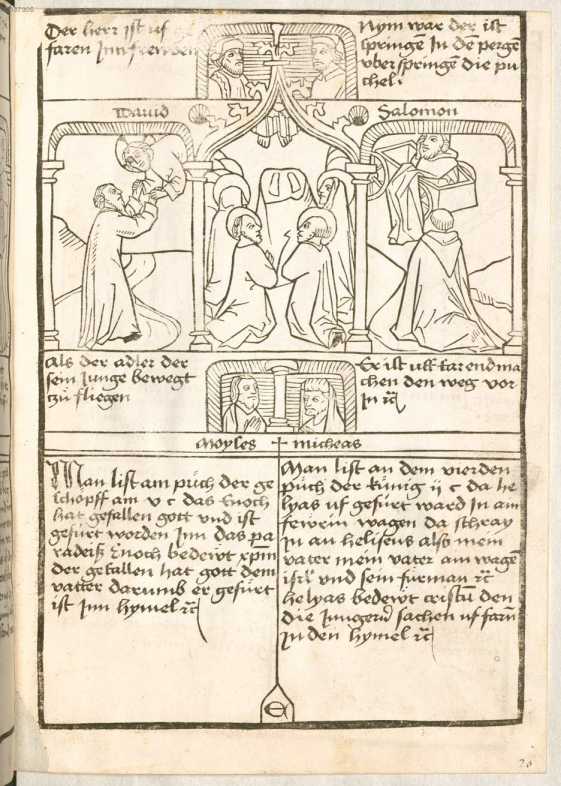 Der herr ist uf ge
faren Inn freuden
Nym war der ist
springē In dē pergē
vber springē die pu
chel.
David
Salomon
Als der adler der
sein Junge bewegt
tzü fliegen
Er ist uff farend ma
chen den weg vor
In rc
Moyses + micheas
Man list am püch der ge
schopff am v c das Enoch
hat gefallen gott vnd ist
gefürt worden Inn das pa
radeiß Enoch bedewt xpm
der gefallen hat gott dem
vatter darumb er gefürt
ist Inn hymel rc
Man list an dem vierden
püch der künig ij c da he
lyas uf gefürt ward In am
fewrin wagen da schray
In an heliseus alss mein
vater mein vater am wagē
isrl vnd sein fürman rc
helyas bedewt cristū den
die Jungern sachen uf farn
In den hymel rc
e
20